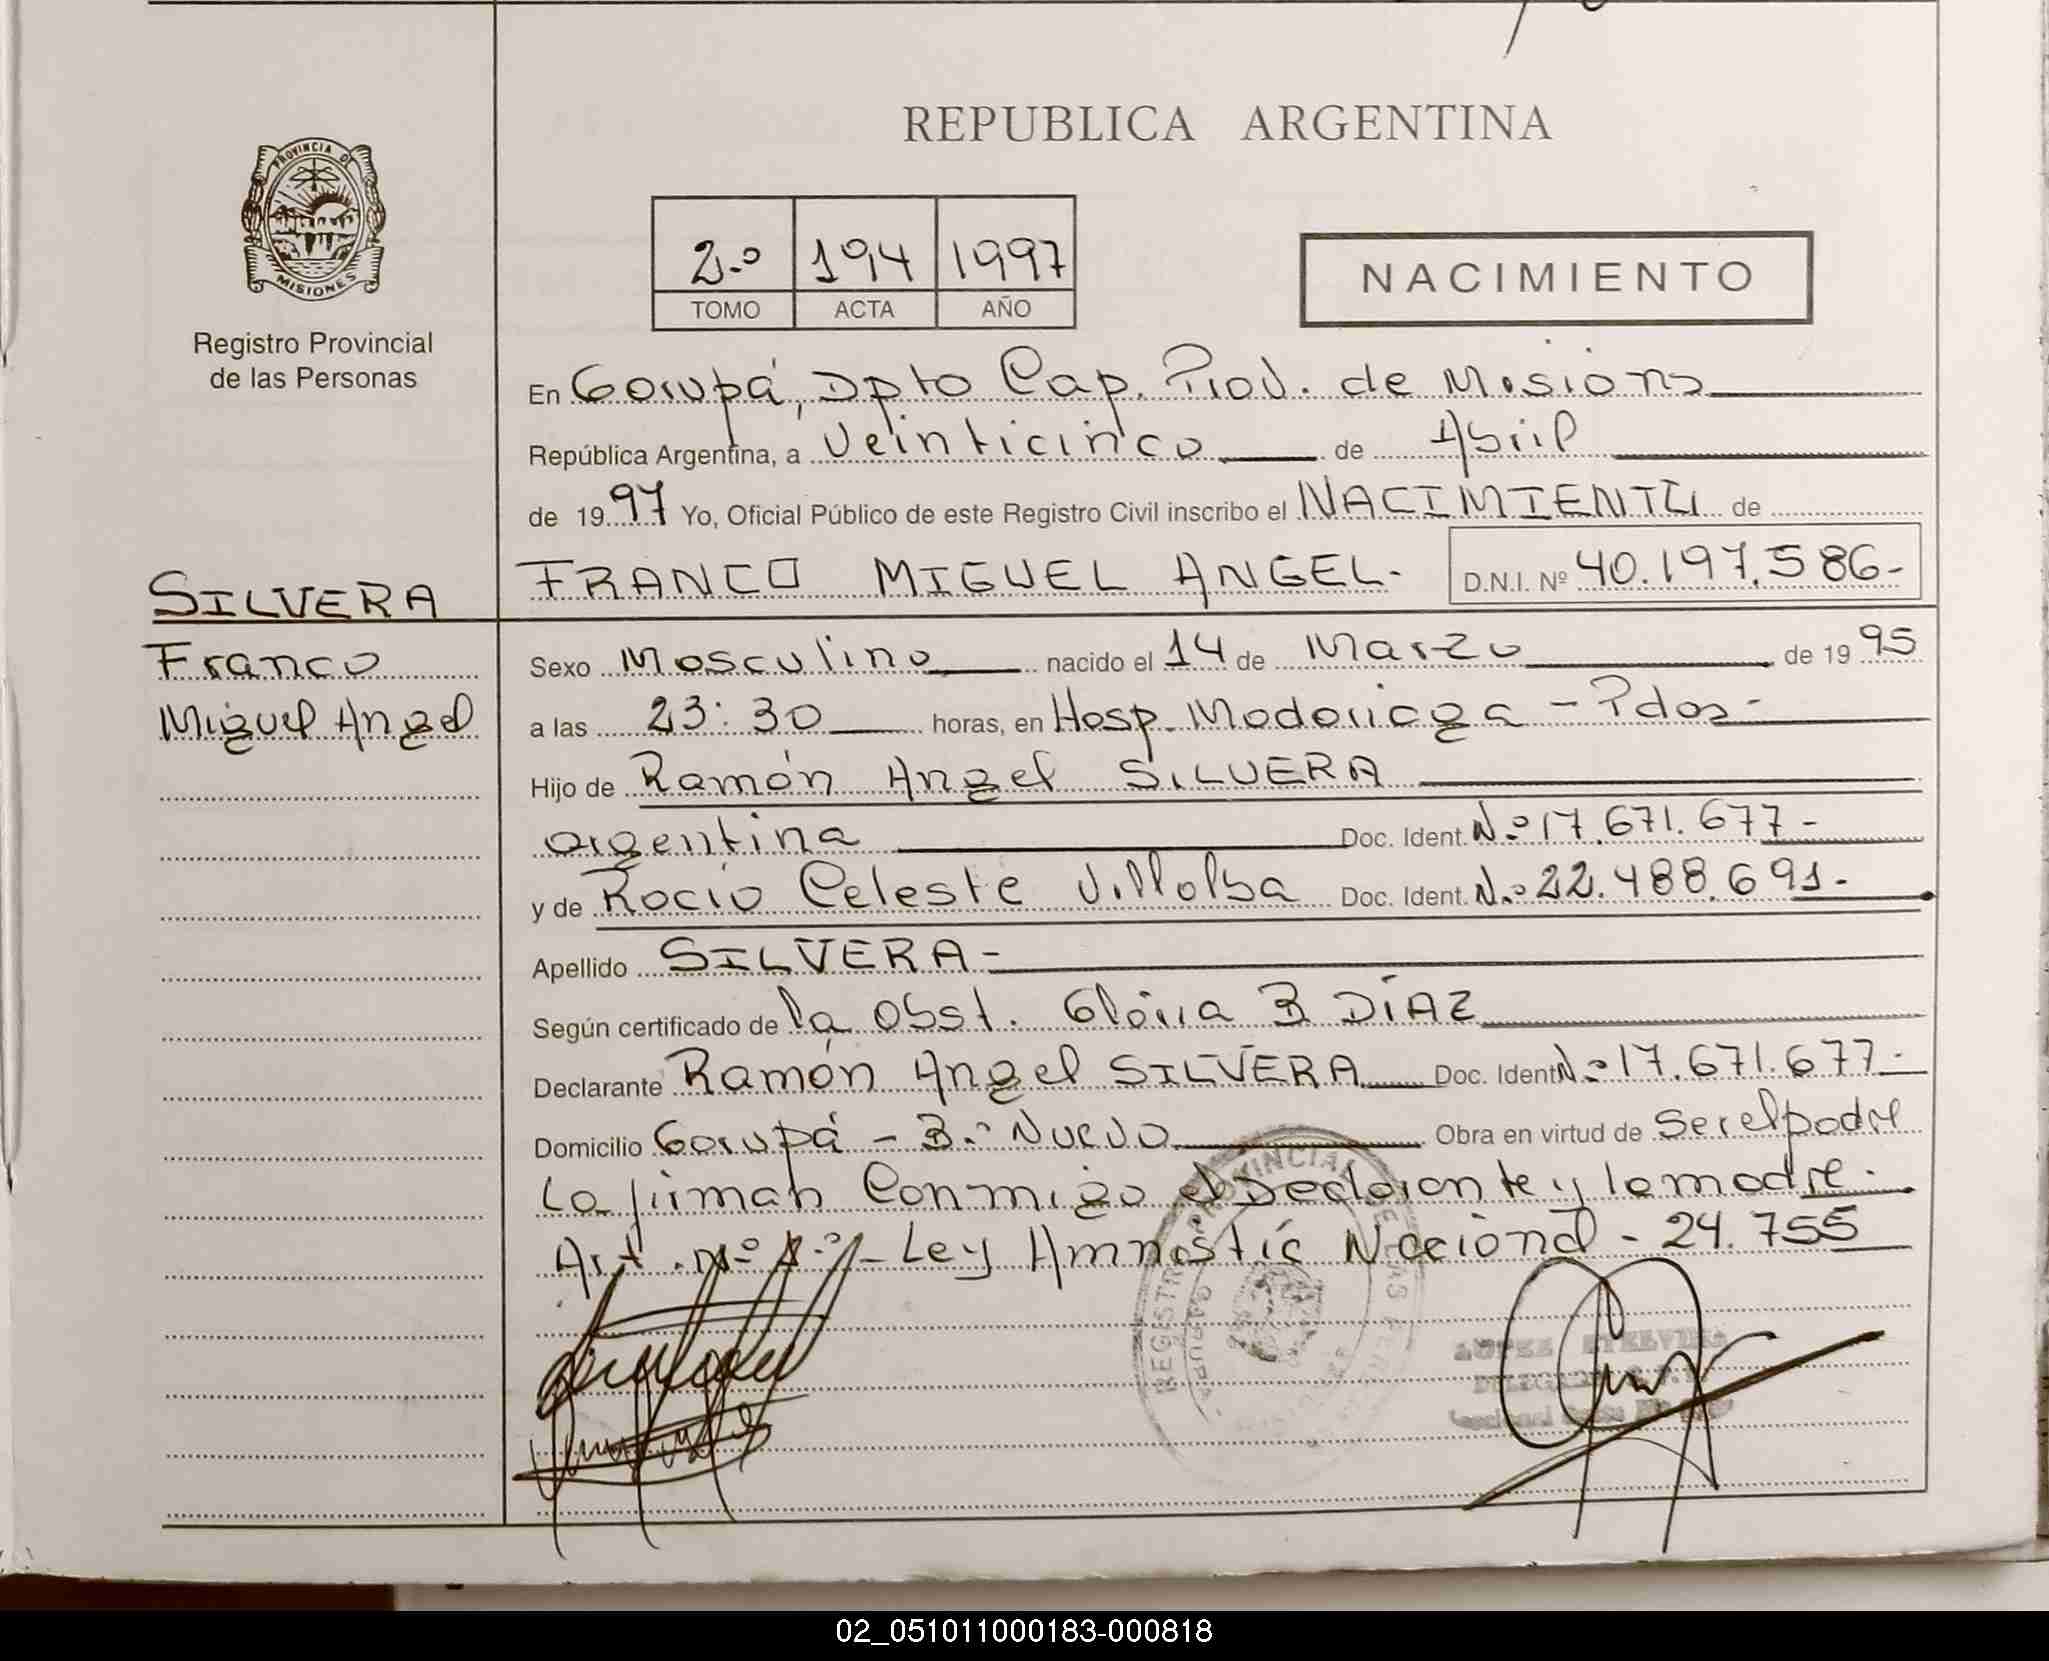 REPUBLICA ARGENTINA
PROVINCIA DE
MISIONES
Registro Provincial
de las Personas
2.º 194 1997
TOMO ACTA AÑO
NACIMIENTO
En Garupá, Dpto Cap. Prov. de Misions
República Argentina, a Veinticinco de Abril
de 1997 Yo, Oficial Público de este Registro Civil inscribo el NACIMIENTO de
FRANCO MIGUEL ANGEL- D.N.I. Nº 40.197.586-
SILVERA
Franco
Miguel Angel
Sexo Masculino nacido el 14 de Marzo de 1995
a las 23:30 horas, en Hosp. Madariaga - Pdas-
Hijo de Ramón Angel SILVERA
argentina Doc. Ident. N.º 17.671.677-
y de Rocío Celeste Villalba Doc. Ident. N.º 22.488.691-
Apellido SILVERA-
Según certificado de la Obst. Gloria B DÍAZ
Declarante Ramón Angel SILVERA Doc. Ident N.º 17.671.677-
Domicilio Garupá - B.º Nuevo Obra en virtud de Ser el padre
La firman Conmigo el Declarante y la madre.
Art. Nº 1.º - Ley Amnistía Nacional - 24.755
REGISTRO PROVINCIAL DE LAS
GARUPA
LOPEZ ETELVINA
02_051011000183-000818